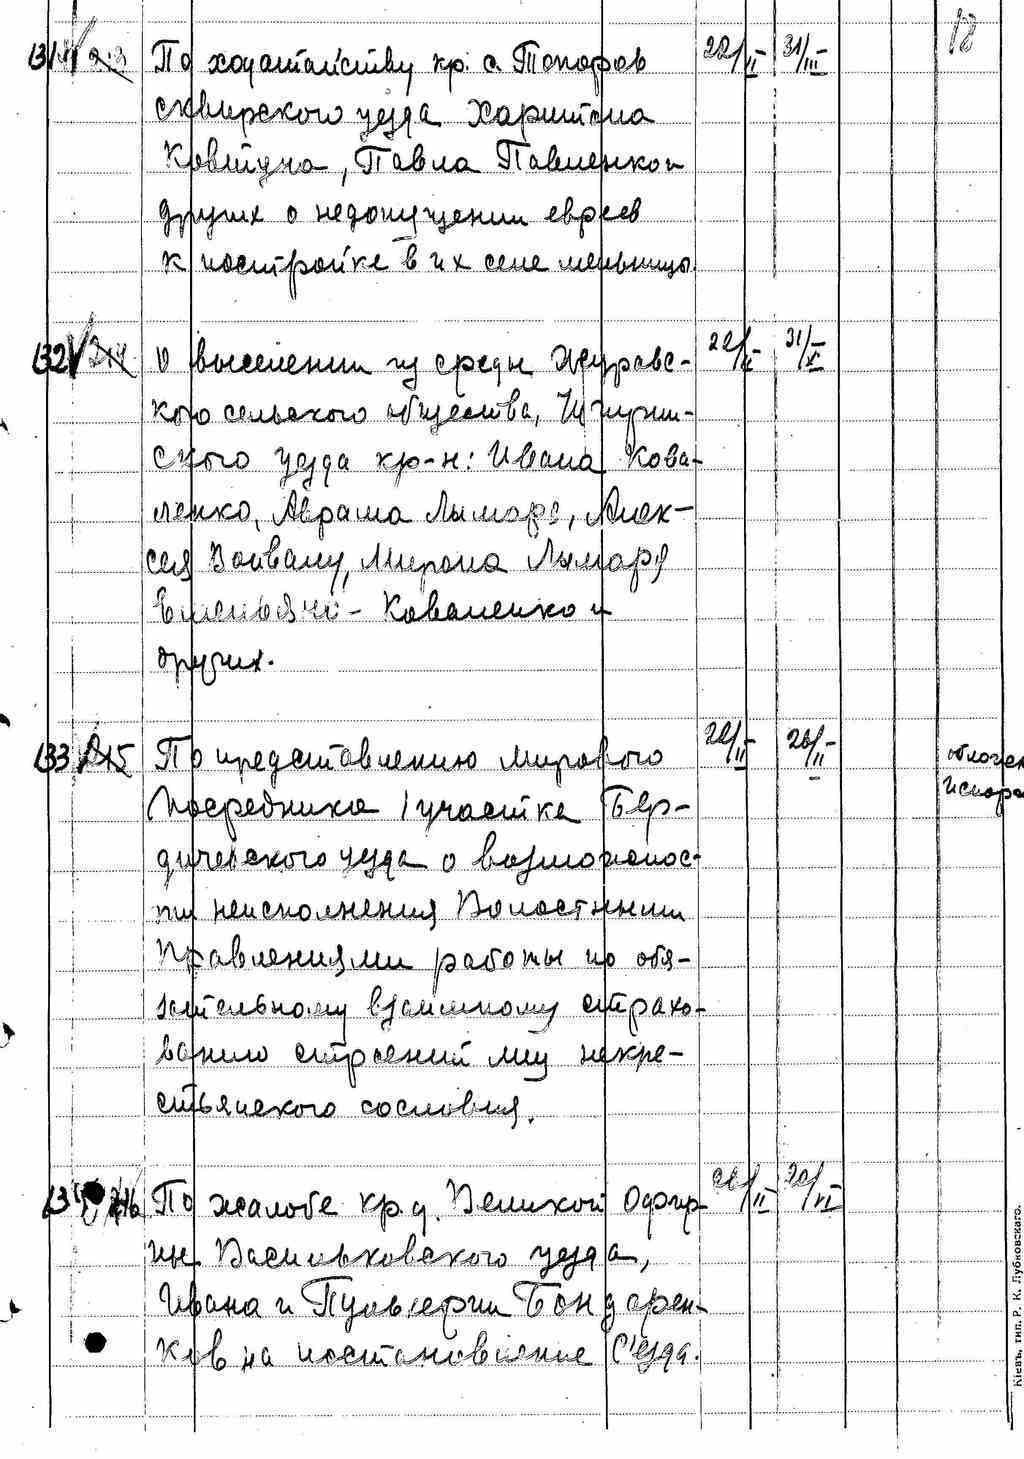 18
131 По ходатайству кр. с. Топоров 22/II 31/III
сквирского уезда Харитона
Ковтуна, Павла Павленко и
других о недопущении евреев
к постройке в их селе мельницы.
132 214 О выселении из среды Журавс- 22/II 31/X
кого сельского общества,
ского уезда кр-н: Ивана Кова-
ленко, Аврама Лымаря, Алек-
сея Мирона Лымаря
Коваленко и
других.
133 215 По представлению мирового 22/II 26/II
Посредника 1 участка Бер-
дичевского уезда о возможнос-
ти неисполнения Волостными
Правлениями работы по обя-
зательному взаимному страхо-
ванию строений лиц некре-
стьянского сословия.
134 216 По жалобе кр. д. Великой Офир- 22/II 20/VI
ны Васильковского уезда,
Ивана и Пульхерии Бондарен-
ков на постановление С'езда.
Кіевъ, тип. Р. К. Лубковскаго.